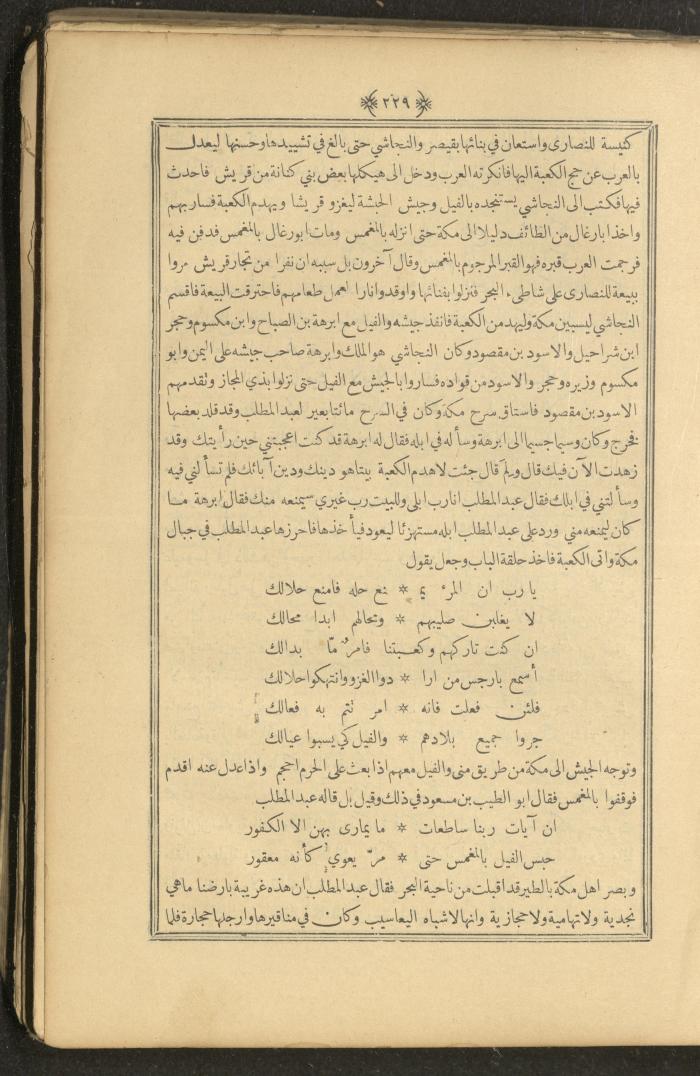 ٢٢٩
كنيسة للنصارى واستعان في بنائها بقيصر والنجاشي حتى بالغ في تشييدها وحسنها ليعدل
بالعرب عن حج الكعبة اليها فانكرته العرب ودخل الى هيكلها بعض بني كنانة من قريش فاحدث
فيها فكتب الى النجاشي يستنجده بالفيل وجيش الحبشة ليغزو قريشا ويهدم الكعبة فساربهم
واخذ ابارغال من الطائف دليلا الى مكة حتى انزله بالمغمس ومات ابورغال بالمغمس فدفن فيه
فرجمت العرب قبره فهو القبر المرجوم بالمغمس وقال آخرون بل سببه ان نفرا من تجار قريش مروا
ببيعة للنصارى على شاطىء البحر فنزلوا بفنائها واوقدوا نارا لعمل طعامهم فاحترقت البيعة فاقسم
النجاشي ليسبين مكة وليهدمن الكعبة فانفذ جيشه والفيل مع ابرهة بن الصباح وابن مكسوم وحجر
ابن شراحيل والاسود بن مقصود وكان النجاشي هو الملك وابرهة صاحب جيشه على اليمن وابو
مكسوم وزيره وحجر والاسود من قواده فساروا بالجيش مع الفيل حتى نزلوا بذي المجاز وتقدمهم
الاسود بن مقصود فاستاق سرح مكة وكان في السرح مائتا بعير لعبد المطلب وقد قلد بعضها
فخرج وكان وسيما جسيما الى ابرهة وسأله في ابله فقال له ابرهة قد كنت اعجبتني حين رأيتك وقد
زهدت الآن فيك قال ولم قال جئت لاهدم الكعبة بيتا هو دينك ودين آبائك فلم تسألني فيه
وسألتني في ابلك فقال عبد المطلب انا رب ابلي وللبيت رب غيري سيمنعه منك فقال ابرهة ما
كان ليمنعه مني ورد على عبد المطلب ابله مستهزئا ليعود فيأخذها فاحرزها عبد المطلب في جبال
مكة واتى الكعبة فاخذ حلقة الباب وجعل يقول
يا رب ان المرء يم * نع حله فامنع حلالك
لا يغلبن صليبهم * ومحالهم ابدا محالك
ان كنت تاركهم وكعبتنا فامر مّا بدالك
أسمع بارجس من ارا * دوا الغزو وانتهكوا حلالك
فلئن فعلت فانه * امر تتم به فعالك
جروا جميع بلادهم * والفيل كي يسبوا عيالك
وتوجه الجيش الى مكة من طريق منى والفيل معهم اذا بعث على الحرم احجم واذا عدل عنه اقدم
فوقفوا بالمغمس فقال ابو الطيب بن مسعود في ذلك وقيل بل قاله عبد المطلب
ان آيات ربنا ساطعات * ما يمارى بهن الا الكفور
حبس الفيل بالمغمس حتى * مرّ يعوي كأنه معقور
وبصر اهل مكة بالطير قد اقبلت من ناحية البحر فقال عبد المطلب ان هذه غريبة بارضنا ما هي
نجدية ولا تهامية ولا حجازية وانها لاشباه اليعاسيب وكان في مناقيرها وارجلها حجارة فلما